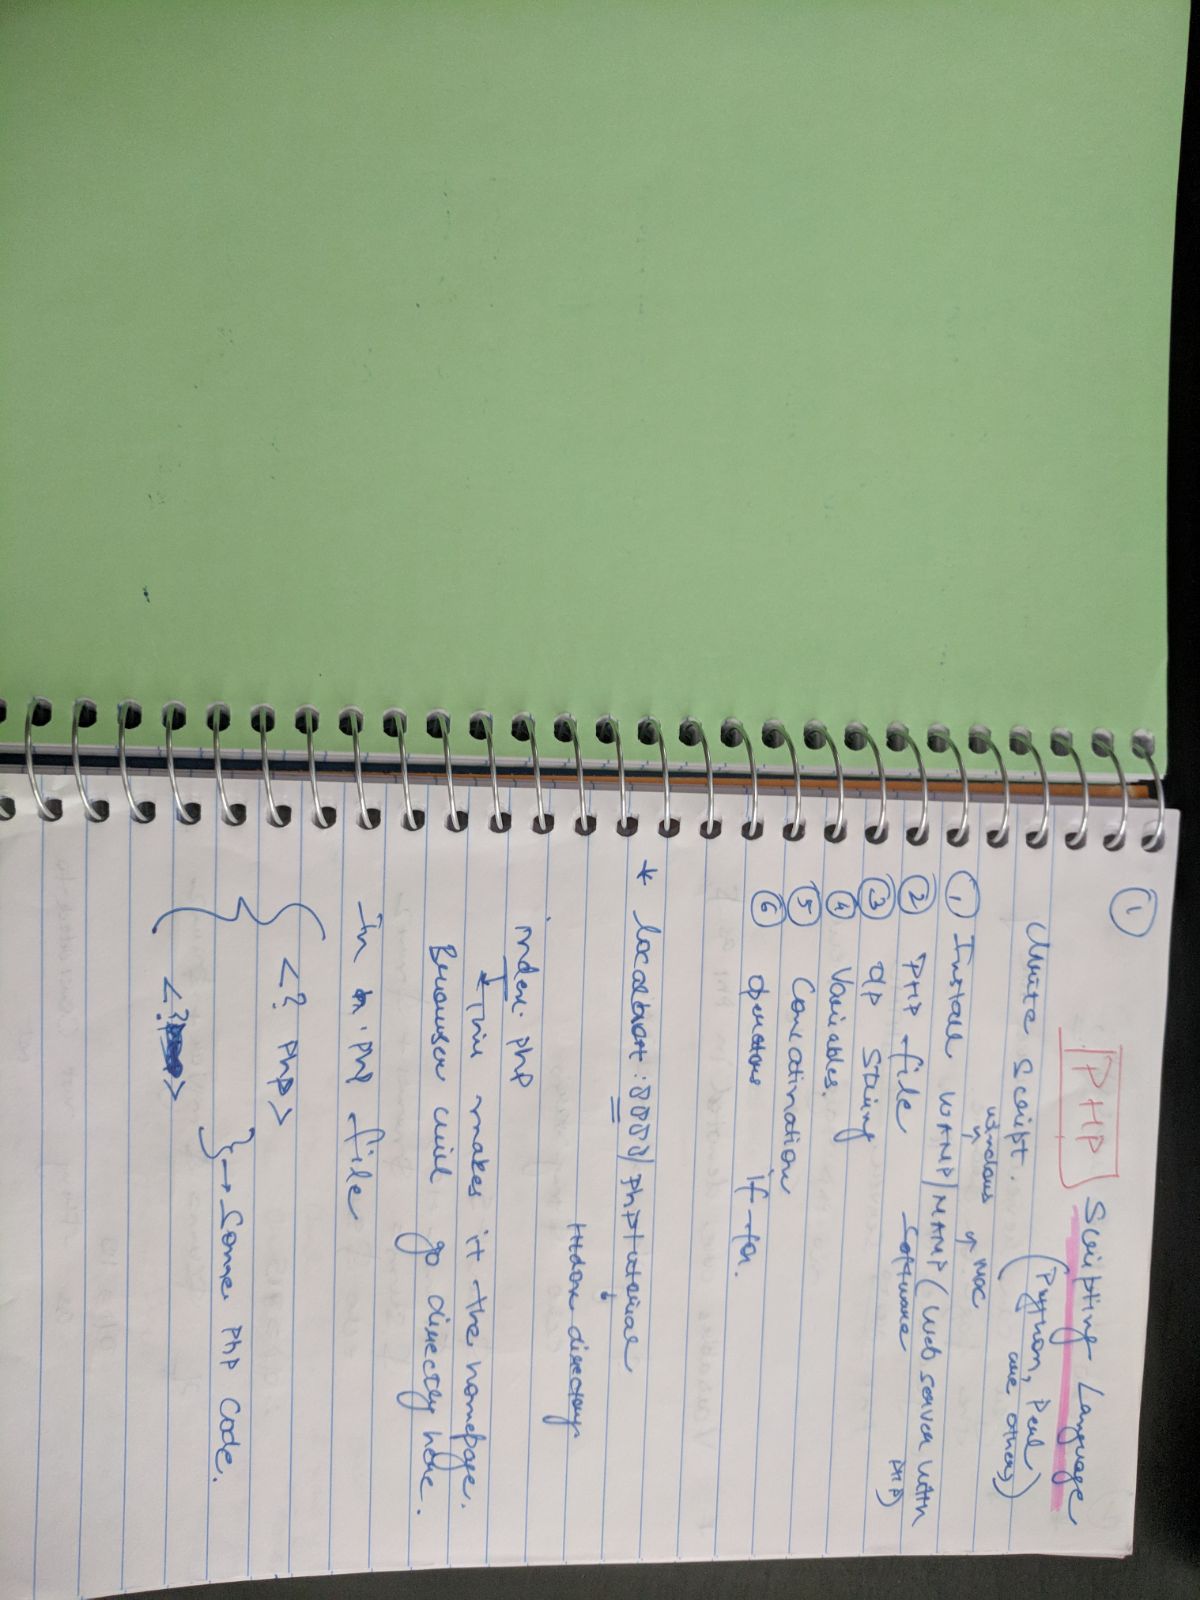 ①
PHP Scripting Language
Write Script. (Python, Perl
are others)
windows Mac
① Install WAMP/MAMP (Web server with
PHP)
② PHP file Software
③ OP String
④ Variables.
⑤ Concatination
⑥ Operators if - for.
* localhost:8888/phptutorial
Htdocs directory
index.php
This makes it the homepage.
Browser will go directly here.
In .php file
<? php>
} → Some php code.
<? >